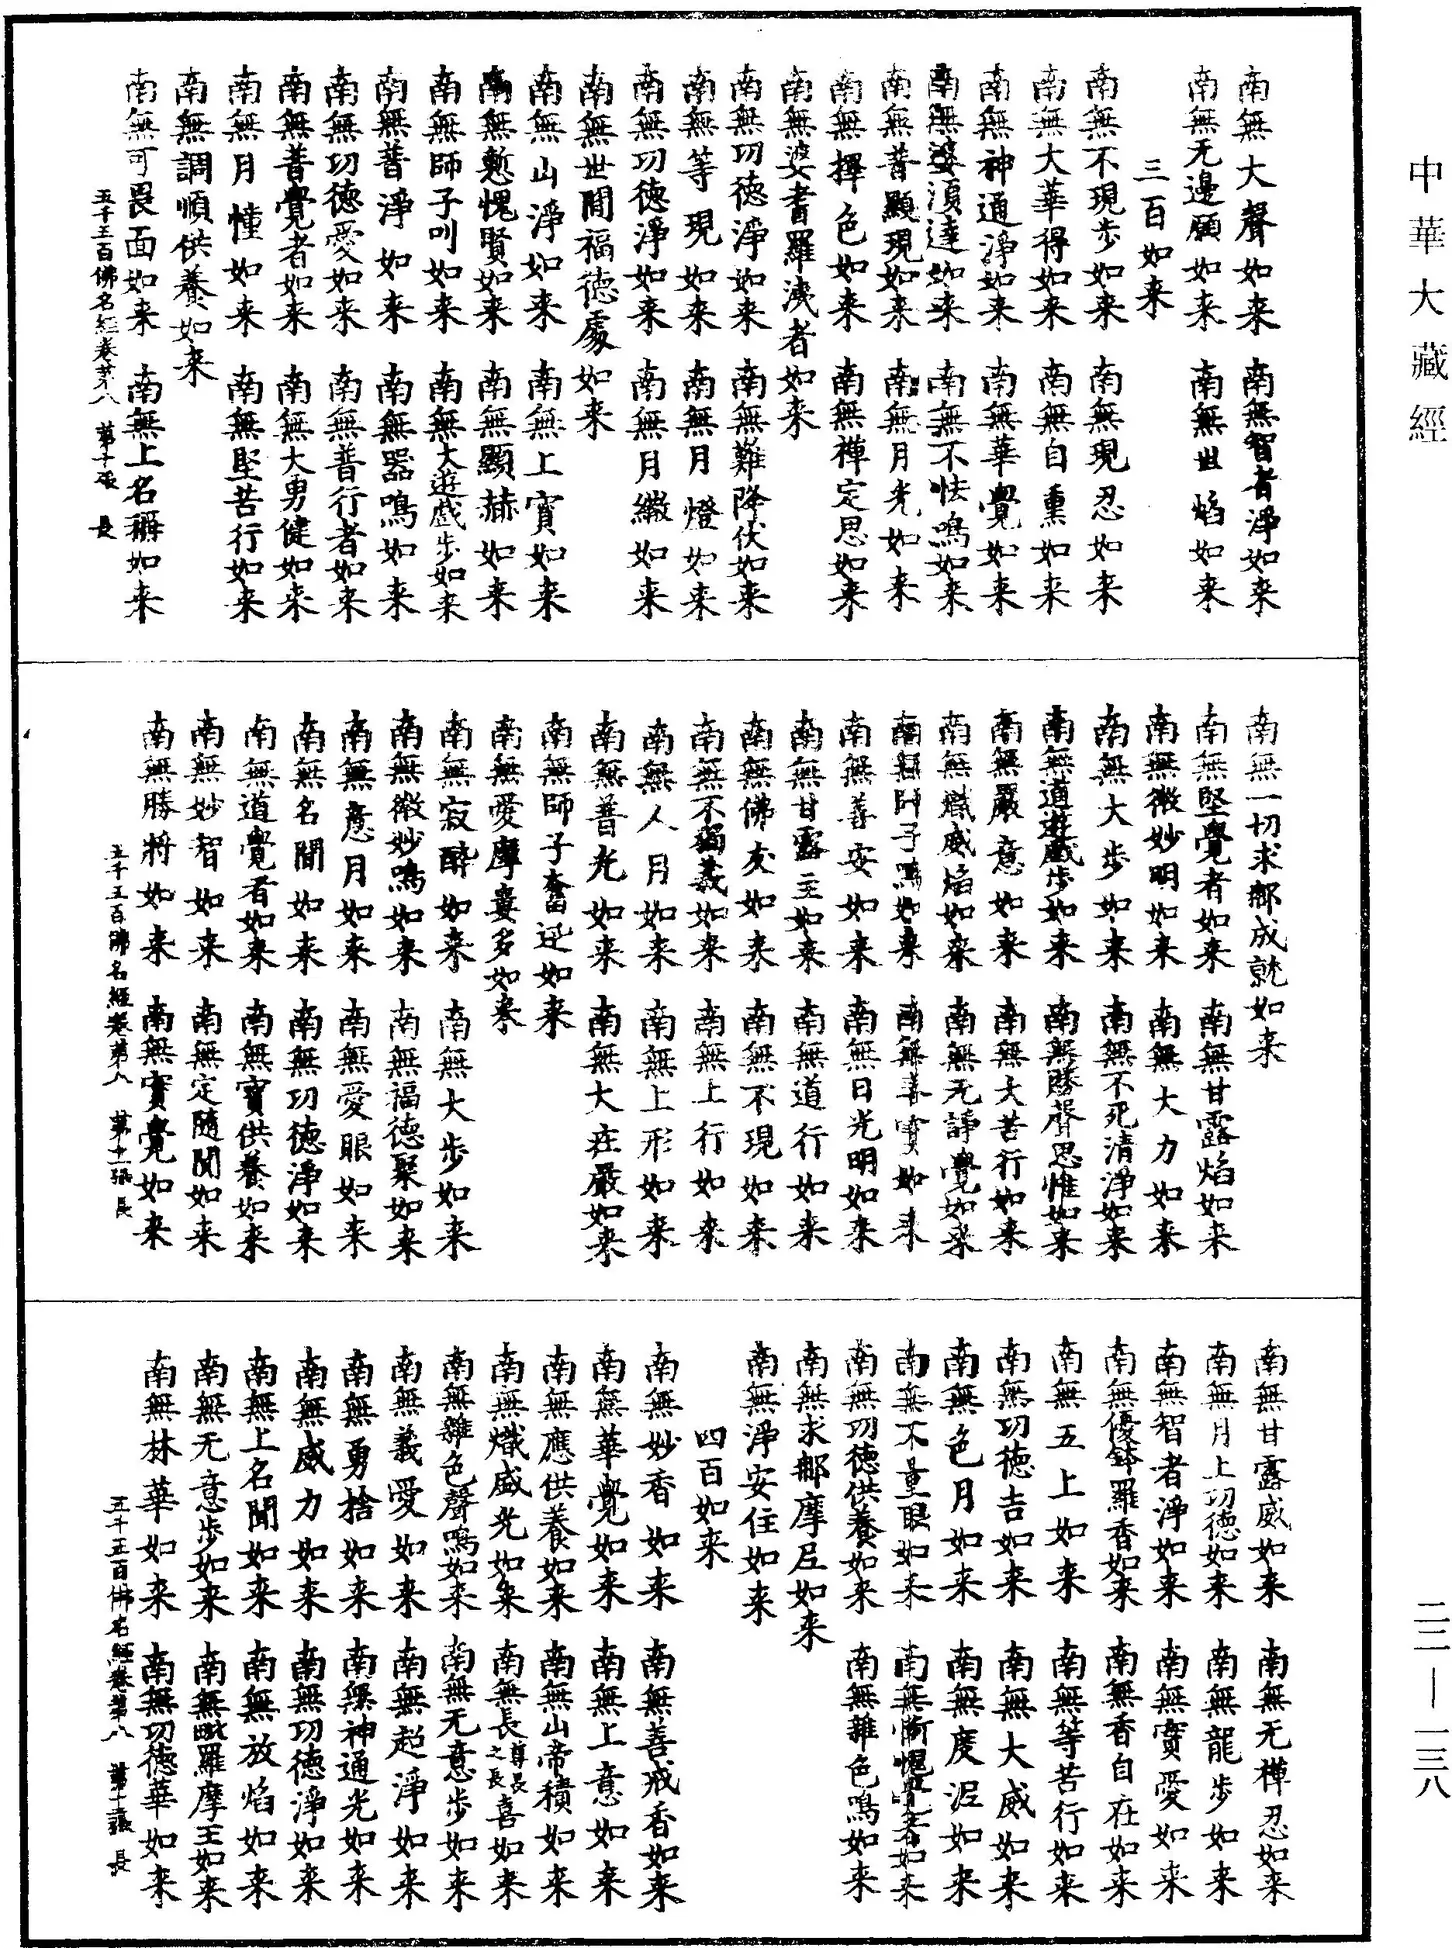 中華大藏經
南無大聲如来 南無智者淨如来
南無无邊願如来 南無世焰如来
三百如来
南無不現步如来 南無現忍如来
南無大華得如来 南無自熏如来
南無神通淨如来 南無華覺如来
南無婆湏達如来 南無不怯鳴如来
南無普顯現如来 南無月光如来
南無擇色如来 南無禅定思如来
南無婆耆羅洟者如来
南無功德淨如来 南無難降伏如来
南無等現如来 南無月燈如来
南無功德淨如来 南無月緻如来
南無世間福德處如来
南無山淨如来 南無上寶如来
南無慙愧賢如来 南無顯赫如来
南無師子吼如来 南無大遊戲步如来
南無普淨如来 南無器鳴如来
南無功德愛如来 南無普行者如来
南無普覺者如来 南無大勇健如来
南無月幢如来 南無堅苦行如来
南無調順供養如来
南無可畏面如来 南無上名稱如来
五千五百佛名經卷苐八 苐十張 長
南無一切求鄉成就如来
南無堅覺者如来 南無甘露焰如来
南無微妙明如来 南無大力如来
南無大步如来 南無不死清淨如来
南無道遊戲步如来 南無勝聲思惟如来
南無嚴意如来 南無大苦行如来
南無熾威焰如来 南無无諍覺如来
南無師子鳴如来 南無善寶如来
南無善安如来 南無日光明如来
南無甘露主如来 南無道行如来
南無佛友如来 南無不現如来
南無不獨義如来 南無上行如来
南無人月如来 南無上形如来
南無普光如来 南無大莊嚴如来
南無師子奮迅如来
南無愛摩婁多如来
南無寂酔如来 南無大步如来
南無微妙鳴如来 南無福德聚如来
南無意月如来 南無愛眼如来
南無名聞如来 南無功德淨如来
南無道覺者如来 南無寶供養如来
南無妙智如来 南無定隨聞如来
南無勝將如来 南無寶覺如来
五千五百佛名經卷苐八 苐十一張 長
南無甘露威如来 南無无樺忍如来
南無月上功德如来 南無龍步如来
南無智者淨如来 南無寶愛如来
南無優鉢羅香如来 南無香自在如来
南無五上如来 南無等苦行如来
南無功德吉如来 南無大威如来
南無色月如来 南無度泥如来
南無不量眼如来 南無慚愧覺者如来
南無功德供養如来 南無雜色鳴如来
南無求鄉摩尼如来
南無淨安住如来
四百如来
南無妙香如来 南無善戒香如来
南無華覺如来 南無上意如来
南無應供養如来 南無山帝積如来
南無熾盛光如来 南無長尊長之長喜如来
南無雜色聲鳴如来 南無无意步如来
南無義愛如来 南無超淨如来
南無勇捨如来 南無神通光如来
南無威力如来 南無功德淨如来
南無上名聞如来 南無放焰如来
南無无意步如来 南無毗羅摩王如来
南無林華如来 南無功德華如来
五千五百佛名經卷苐八 苐十二張 長
二二—一三八